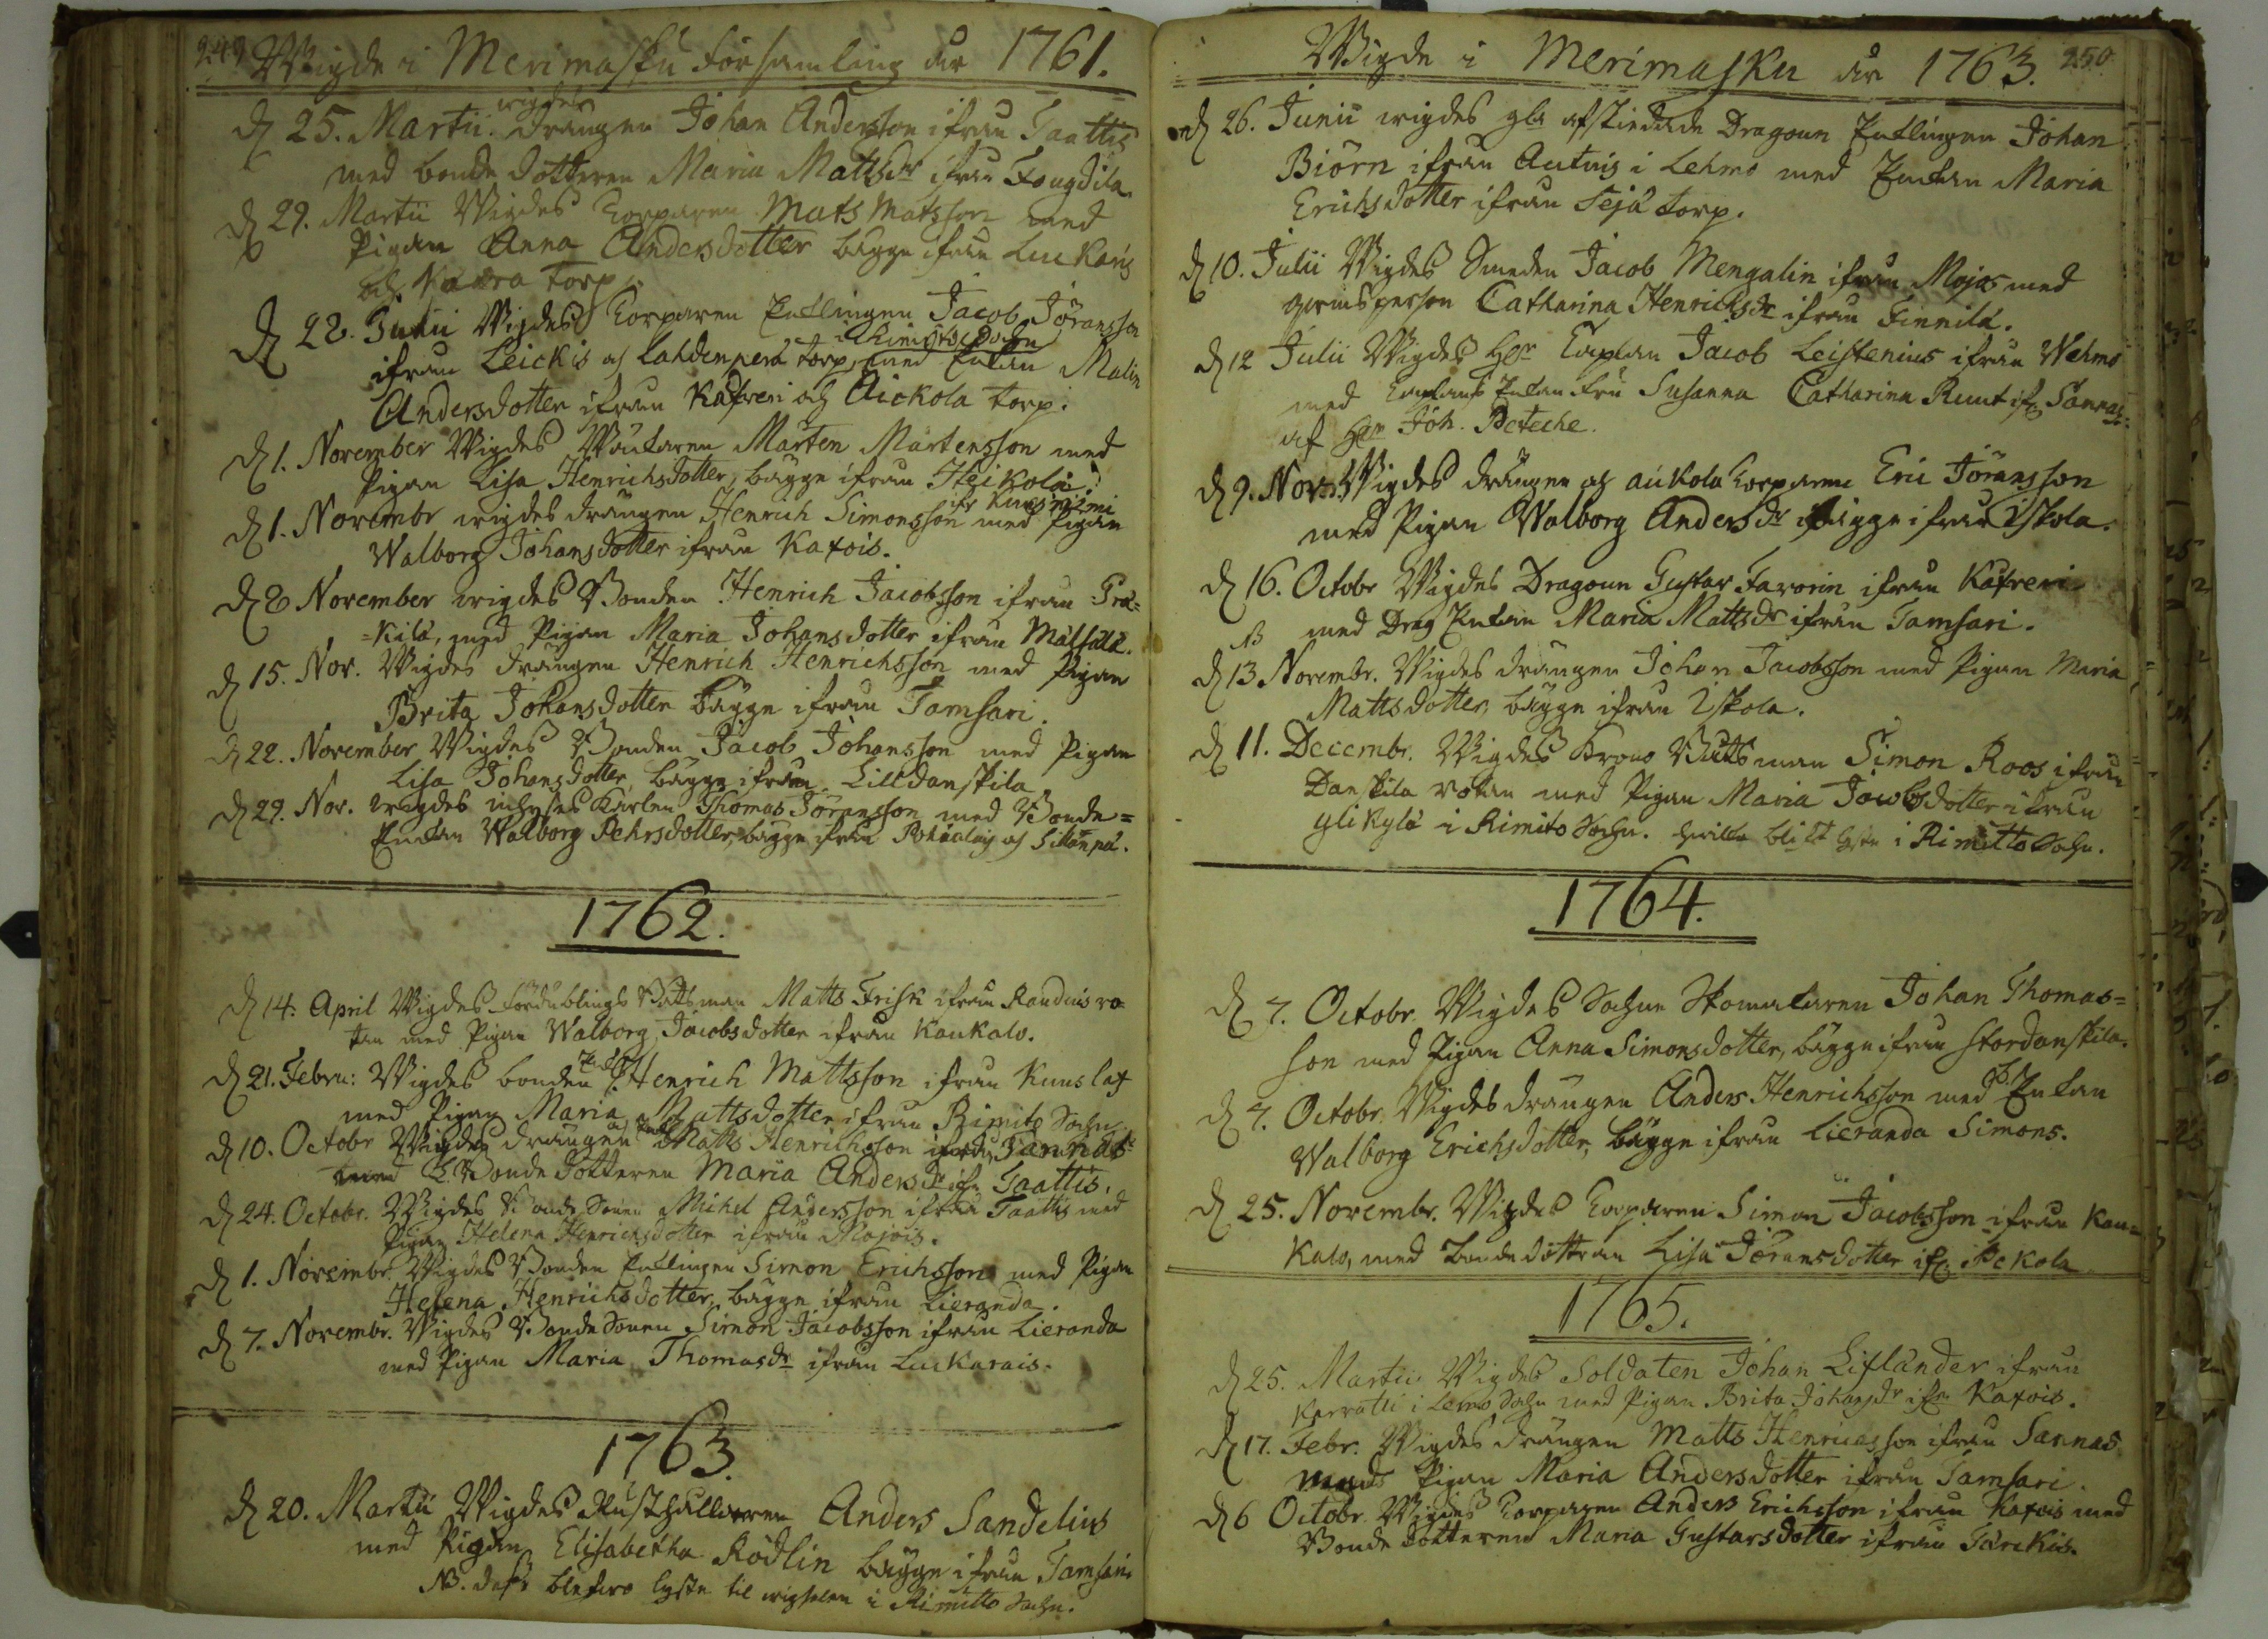 249 Wigde i Merimasku Församling år 1761.
d 25. Martii. wigdes drängen Johan Andersson ifrån Taattis
med bonde dotteren Maria Mattsdr ifrån Fougdila.
d 29. Martii Wigdes Torparen Mats Matsson med
Pigan Anna Andersdotter bägge ifrån Luckaris
och Waara torp.
d 28. Junii Wigdes Torparen Enklingen Jacob Jöransson
ifrån Leickis och Lahdenperä torp, med Enkan Malin
Andersdotter ifrån Kafreri och Aickola torp.
d 1. November Wigdes Wäktaren Mårten Mårtensson med
Pigan Lisa Henrichsdotter, bägge ifrån Heikolä.
d 1. Novembr wigdes drängen Henrich Simonsson med Pigan
Walborg Johansdotter ifrån Katois.
d 8 November wigdes Bonden Henrich Jacobsson ifrån
kilä, med Pigan Maria Johansdotter ifrån Målsala.
d 15. Nov. Wigdes drängen Henrich Henrichsson med Pigan
Brita Johansdotter bägge ifrån Tamsari.
d 22. November Wigdes Bonden Jacob Johansson med Pigan
Lisa Johansdotter, bägge ifrån Lilldanskila
d 29. Nov. wigdes inhyses Karlen Thomas Jöransson med Bonde=
Enkan Walborg Pehrsdotter, bägge ifrån och Sillanpä.
1762.
d 14. April Wigdes fördublings Båtsman Matts Frisk ifrån Randuis ro
tan med Pigan Walborg Jacobsdotter ifrån Kaukalo.
d 21. Febru: Wigdes bonden Henrich Mattsson ifrån Kuuslax
med Pigan Maria Mattsdotter ifrån Rimito Sochn.
d 10. Octobr Wigdes drängen Matts Henrichsson ifrån Sannas
med Bonde dotteren Maria Andersdr ifrån Taattis.
d 24. Octobr. Wigdes Bonde Sonen Michel Andersson ifrån Taattis med
Pigan Helena Henrichsdotter ifrån Mojois.
d 1. Novembr. Wigdes Bonden Enklingen Simon Erichsson med Pigan
Helena Henrichsdotter, bägge ifrån Lieranda.
d 7. Novembr. Wigdes Bonde Sonen Simon Jacobsson ifrån Lieranda
med Pigan Maria Thomasdr ifrån Luckarais.
1763.
d 20. Martii Wigdes Rusthållaren Anders Sandelius
med Pigan Elisabetha Rödlin bägge ifrån Tamsari
NB. desse blefwo lyste til wigselen i Rimitto Sochn.
Wigde i Merimasku år 1763. 250
d 26. Junii wigdes gla afskedade Dragoun Enklingen Johan
Biörn ifrån Autuis i Lehmo med Enkan Maria
Erichsdotter ifrån Sejä torp.
d 10. Julii Wigdes Smeden Jacob Mengalin ifrån Mojas med
qwinsperson Catharina Henrichsdr ifrån Finnilä.
d 12 Julii Wigdes Hr Caplan Jacob Leistenius ifrån Wehmo
med Caplans Enkan Fru Susanna Catharina Ruut ifr Sannas
af Herr Joh. Peteche.
d 9. Nov. Wigdes drängen och aukola torparen Eric Jöransson
med Pigan Walborg Andersdr bägge ifrån Iskola.
d 16. Octobr Wigdes Dragoun Gustav Favorin ifrån Kafreri
med Drag Enkan Maria Mattsdr ifrån Tamsari.
d 13 Novembr. Wigdes drängen Johan Jacobsson med Pigan Maria
Mattsdotter, bägge ifrån Iskola.
d 11. Decembr. Wigdes Krono Båtsman Simon Roos ifrån
Danskila rotan med Pigan Maria Jacobsdotter ifrån
Ylikylä i Rimito Sochn. hwilka blifit lyste i Rimitto Sochn.
1764.
d 7. Octobr. Wigdes Sochne Skomakaren Johan Thomas=
son med Pigan Anna Simonsdotter, bägge ifrån Stordanskila.
d 7. Octobr. Wigdes drängen Anders Henrichsson med B. Enkan
Walborg Erichsdotter, bägge ifrån Lieranda Simons.
d 25. Novembr. Wigdes Torparen Simon Jacobsson ifrån Kau=
kalo, med bonde dottran Lisa Jöransdotter ifr. Pekola
1765.
d 25. Martii Wigdes Soldaten Johan Lifländer ifrån
Karvatti i Lemo Sochn med Pigan Brita Johansdr ifrn Katois.
d 17. Febr. Wigdes drängen Matts Henricsson ifrån Sannas
med Pigan Maria Andersdotter ifrån Tamsari.
d 6 Octobr. Wigdes Torparen Anders Erichsson ifrån Katois med
Bonde dotteren Maria Gustavsdotter ifrån Tärckis.